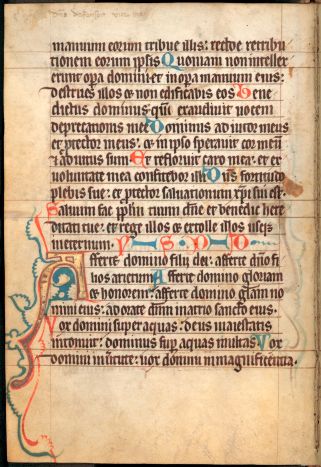 manuum eorum tribue illis: redde retribu
tionem eorum ipsis Quoniam non intellex
erunt opa domini et in opa manuum eius:
destrues illos et non edificabis eos Bene
dictus dominus: qm exaudiuit uocem
deprecationis mee Dominus adiutor meus
et ptector meus: et in ipso sperauit cor meum
et adiutus sum Et refloruit caro mea: et ex
uoluntate mea confitebor illi Dns fortitudo
plebis sue: et ptector saluationum xpi sui est
Saluum fac pplm tuum dne et benedic here
ditati tue: et rege illos et extolle illos usq in
ineternum.
Afferte domino filij dei: afferte dno fi
lios arietum Afferte domino gloriam
et honorem: afferte domino glam no
mini eius: adorate dnm in atrio sancto eius.
Vox domini super aquas: deus maiestatis
intonuit: dominus sup aquas multas Vox
domini in uirtute: uox domini in magnificentia.